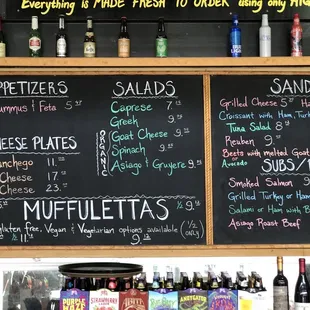 Everything is MADE FRESH TO ORDER using only
APPETIZERS
Hummus & Feta 5
CHEESE PLATES
Manchego 11.
Cheese 17.
Cheese 23.
SALADS
ORGANIC
Caprese 7.
Greek 9.
Goat Cheese 9.
Spinach 9.
Asiago & Gruyere 9.
MUFFULETTAS ½ 9.
Gluten free, Vegan & Vegetarian options available (½ only)
½ 11. 9.
SAND
Grilled Cheese 5
Croissant with Ham, Turk
Tuna Salad 8.
Reuben 9.
Beets with melted Goat
or Avocado
SUBS/
Smoked Salmon 9
Grilled Turkey or Ham
Salami or Ham with B
Asiago Roast Beef
PURPLE HAZE
STRAWBERRY
AMBER
TURBODOG